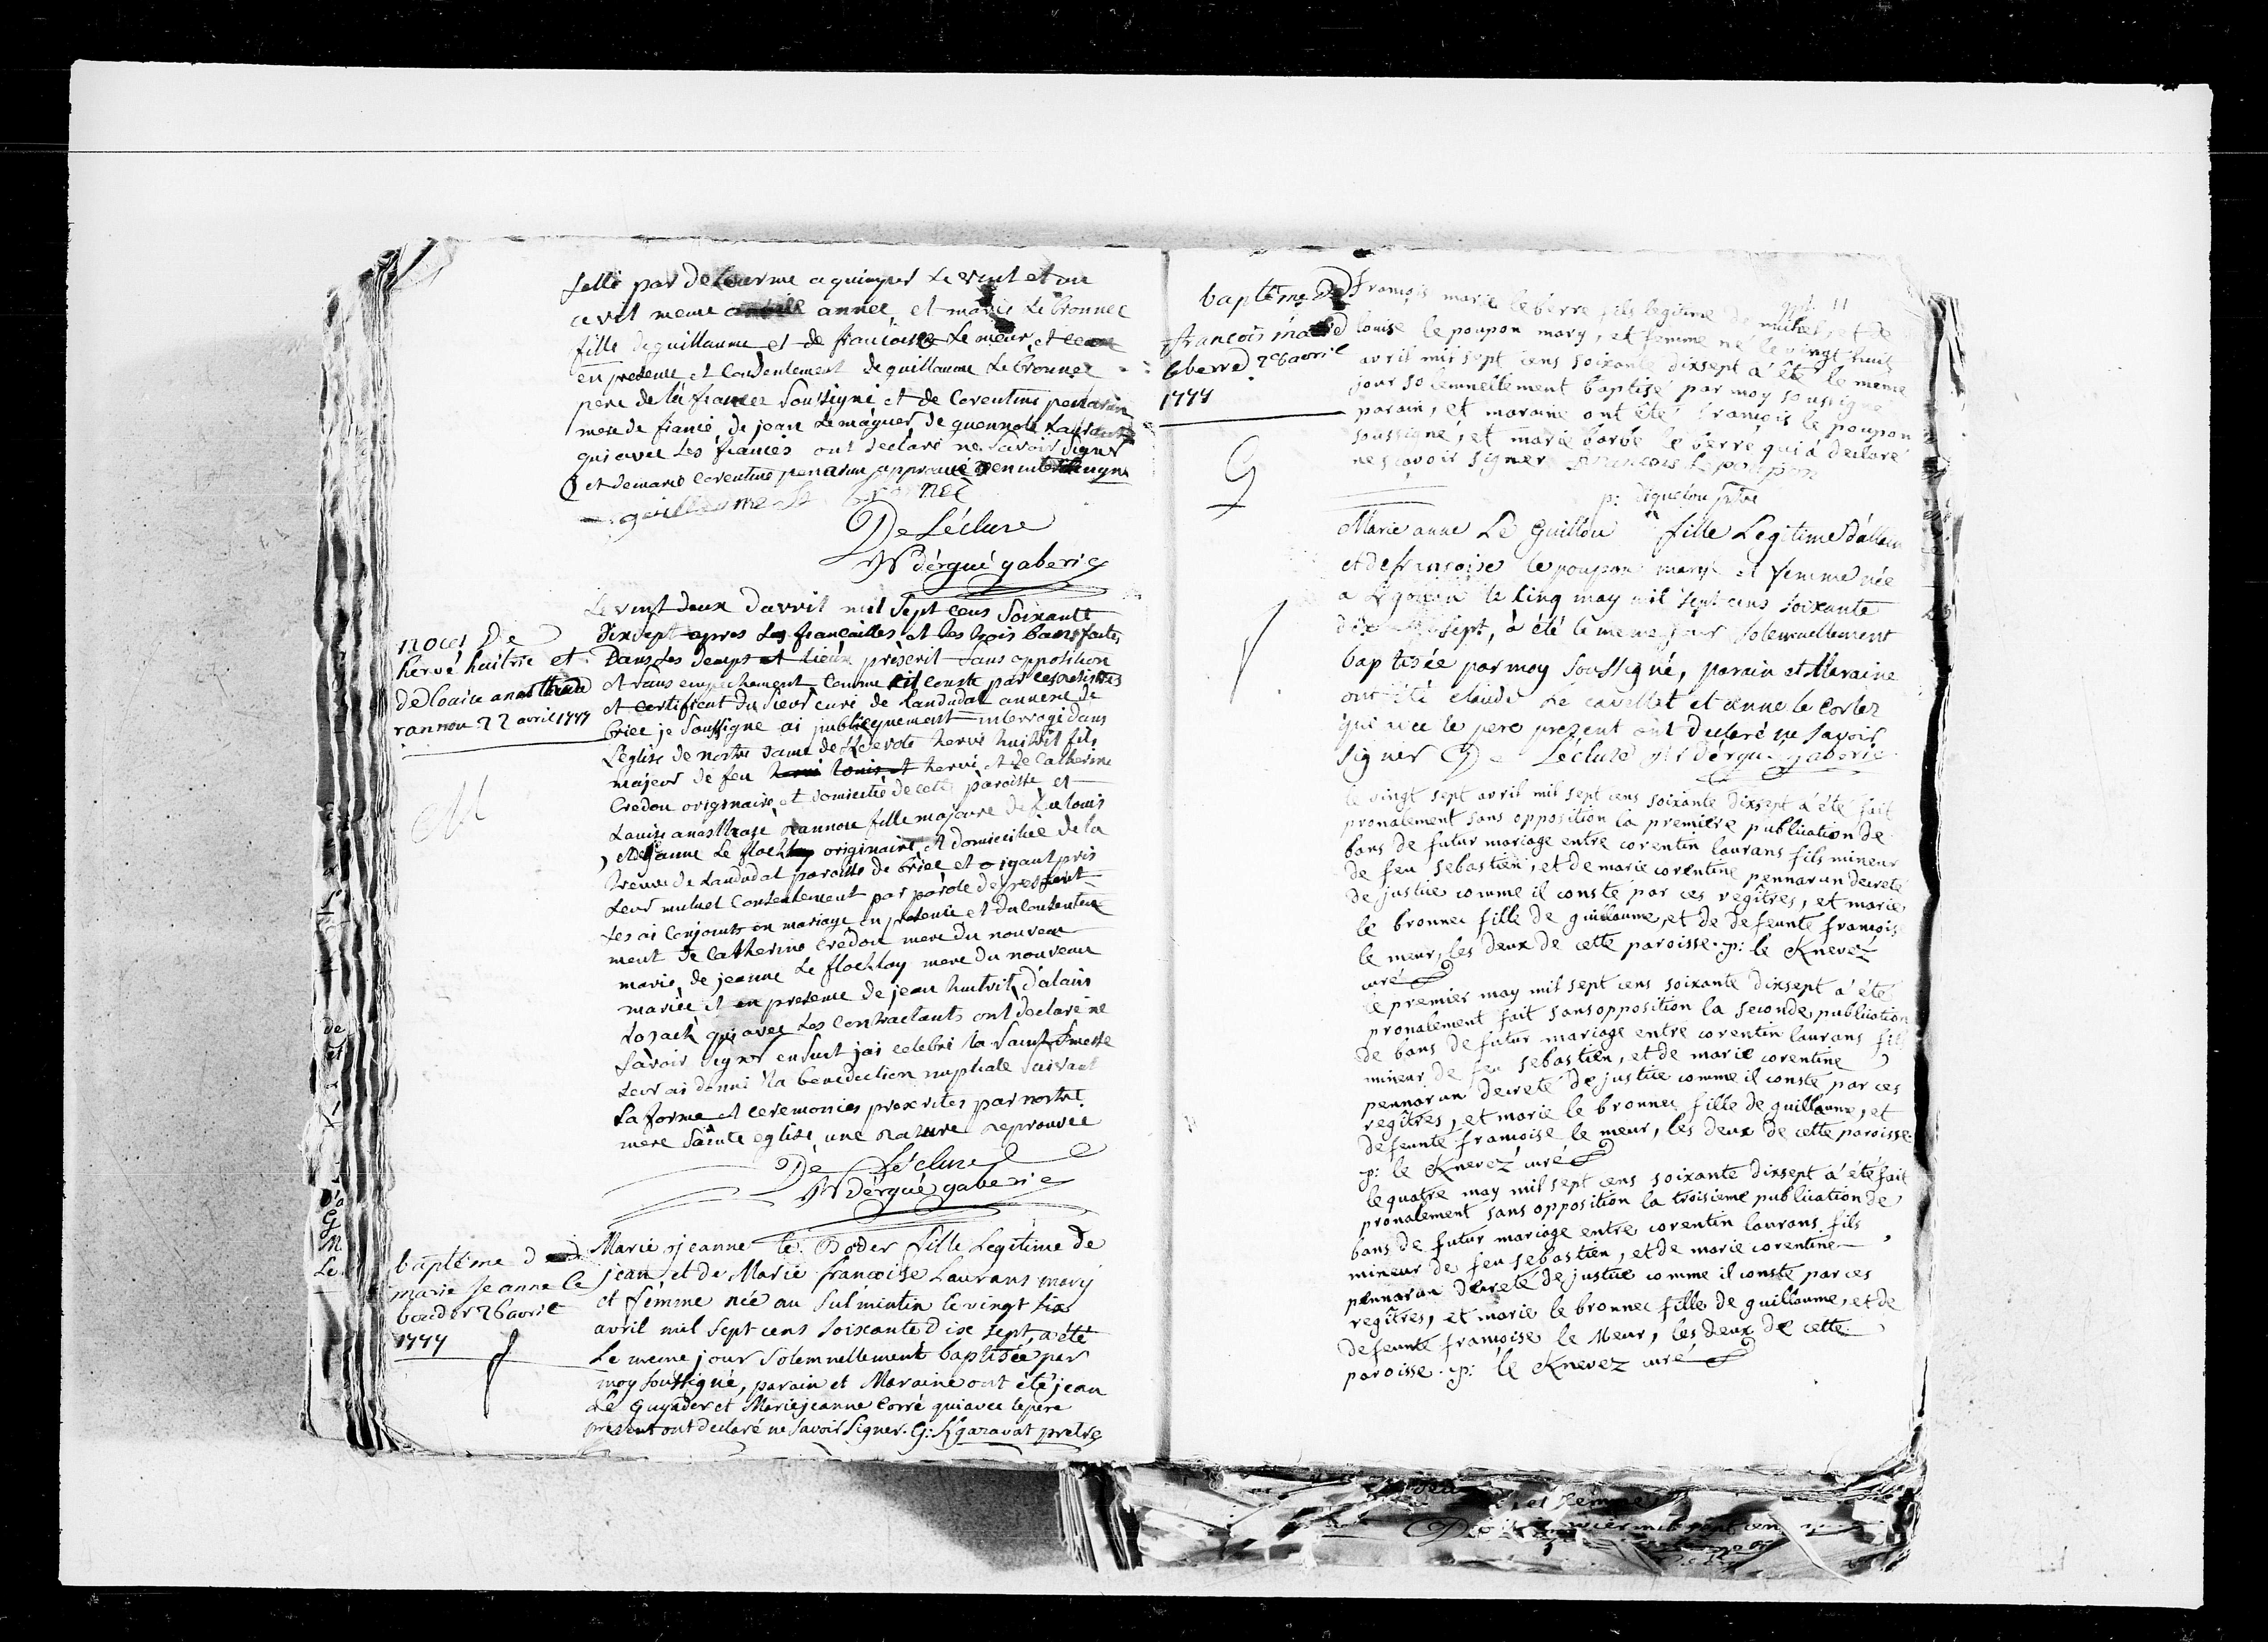 sellé par Delecerme a quimper le vint et un
avril meme année, et marie Le bronnec
fille de guillaume et de francoise Le meur, et ce
en presence et Consentement de guillaume Le bronnec
pere de la fiancee Soussigné et de Corentine penarun
mere de fiancé, de jean Le maguer, de guennolé Laurans
qui avec Les fiancés ont declaré ne Savoir Signer
et de marie corentine penarun approuvé en interligne
guillaume Le bronnec
De Lécluse
Rr dérgué gaberic
noces De
hervé huitric et
de louise anasthasie
rannou 22 avril 1777
Le vint deux d'avril mil Sept cens Soixante
Dixsept apres Les fiancailles et les trois bans faites
Dans les temps et Lieux prèscrit Sans opposition
et sans empechement comme il conste par ces registres
et certificat du Sieur curé de Landudal annexe de
briec je Soussigne ai publiquement interrogé dans
L'église de nostre dame de Kdevote hervé huitric fils
majeur de feu hervé et de Catherine
Credou originaire et domicilié de cette paroisse et
Louise anasthasie Rannou fille majeure de feu louis
et de jeanne Le flochlay originaire et domiciliée de la
treuve de Landudal paroisse de briec et aigant pris
Leur mutuel Consentement par parole de present
Les ai Conjoints en mariage en presence et du consente
ment de Catherine Credou mere du nouveau
marié, de jeanne Le flochlay mere du nouveau
mariée et en presence de jean huitric, d'alain
Lozach qui avec Les Contractants ont declaré ne
Savoir Signer ensuit jai celebré la Sainte messe
Leur ai donné la benediction nuptiale Suivant
La forme et ceremonies prescrites par nostre
mere Sainte eglise, une rature reprouvée
De Lécluse
Rr dérgué gaberic
baptéme de
marie jeanne le
boeder 26 avril
1777
Marie jeanne le Boder fille Legitime de
jean, et de Marie francoise Laurans mary
et femme née au Sulmintin le vingt six
avril mil Sept cens Soixante dix sept, a été
Le meme jour Solemnellement baptisée par
moy soussigné, parain et Maraine ont été jean
Le Guyader et Marie jeanne Corré qui avec le pere
present ont declaré ne Savoir Signer. G: Kgaravat pretre
baptême De
francois marie
leberre 28 avril
1777
11
François marie leberre fils legitime de michel, et de
louise le poupon mary, et femme né le vingt huit
avril mil sept cens soixante dixsept a été le meme
jour solemnellement baptisé par moy soussigné
parain, et maraine ont été françois le poupon
soussigné, et marie barbe le berre qui a declaré
ne scavoir signer francois le poupon
p: diquelou ptre
Marie anne Le Guillou fille Legitime d'allain
et de françoise le poupon mary et femme née
a le cinq may mil sept cens soixante
dix sept, à été le meme jour solemnellement
baptisée par moy Soussigné, parain et Maraine
ont été claude Le cavellat et anne le Corler
qui avec le pere present ont declaré ne Savoir
Signer De Lécluse Rr dérgué gaberic
le vingt sept avril mil sept cens soixante dixsept a été fait
pronalement sans opposition la premiere publication de
bans de futur mariage entre corentin laurans fils mineur
de feu sebastien, et de marie corentine pennarun decreté
de justice comme il conste par ces regîtres, et marie
le bronnec fille de guillaume, et de defeunte françoise
le meur, les deux de cette paroisse. p: le Knevez
curé
le premier may mil sept cens soixante dixsept a été
pronalement fait sans opposition la seconde publication
de bans de futur mariage entre corentin laurans fils
mineur de feu sebastien, et de marie corentine
pennarun decreté de justice comme il conste par ces
regîtres, et marie le bronnec fille de guillaume, et
defeunte francoise le meur, les deux de cette paroisse
p: le Knevez curé
le quatre may mil sept cens soixante dixsept a été fait
pronalement sans opposition la troisieme publication de
bans de futur mariage entre corentin laurans fils
mineur de feu sebastien, et de marie corentine
pennarun decreté de justice comme il conste par ces
regîtres, et marie le bronnec fille de guillaume, et de
defeunte francoise le Meur, les deux de cette
paroisse. p: le Knevez curé